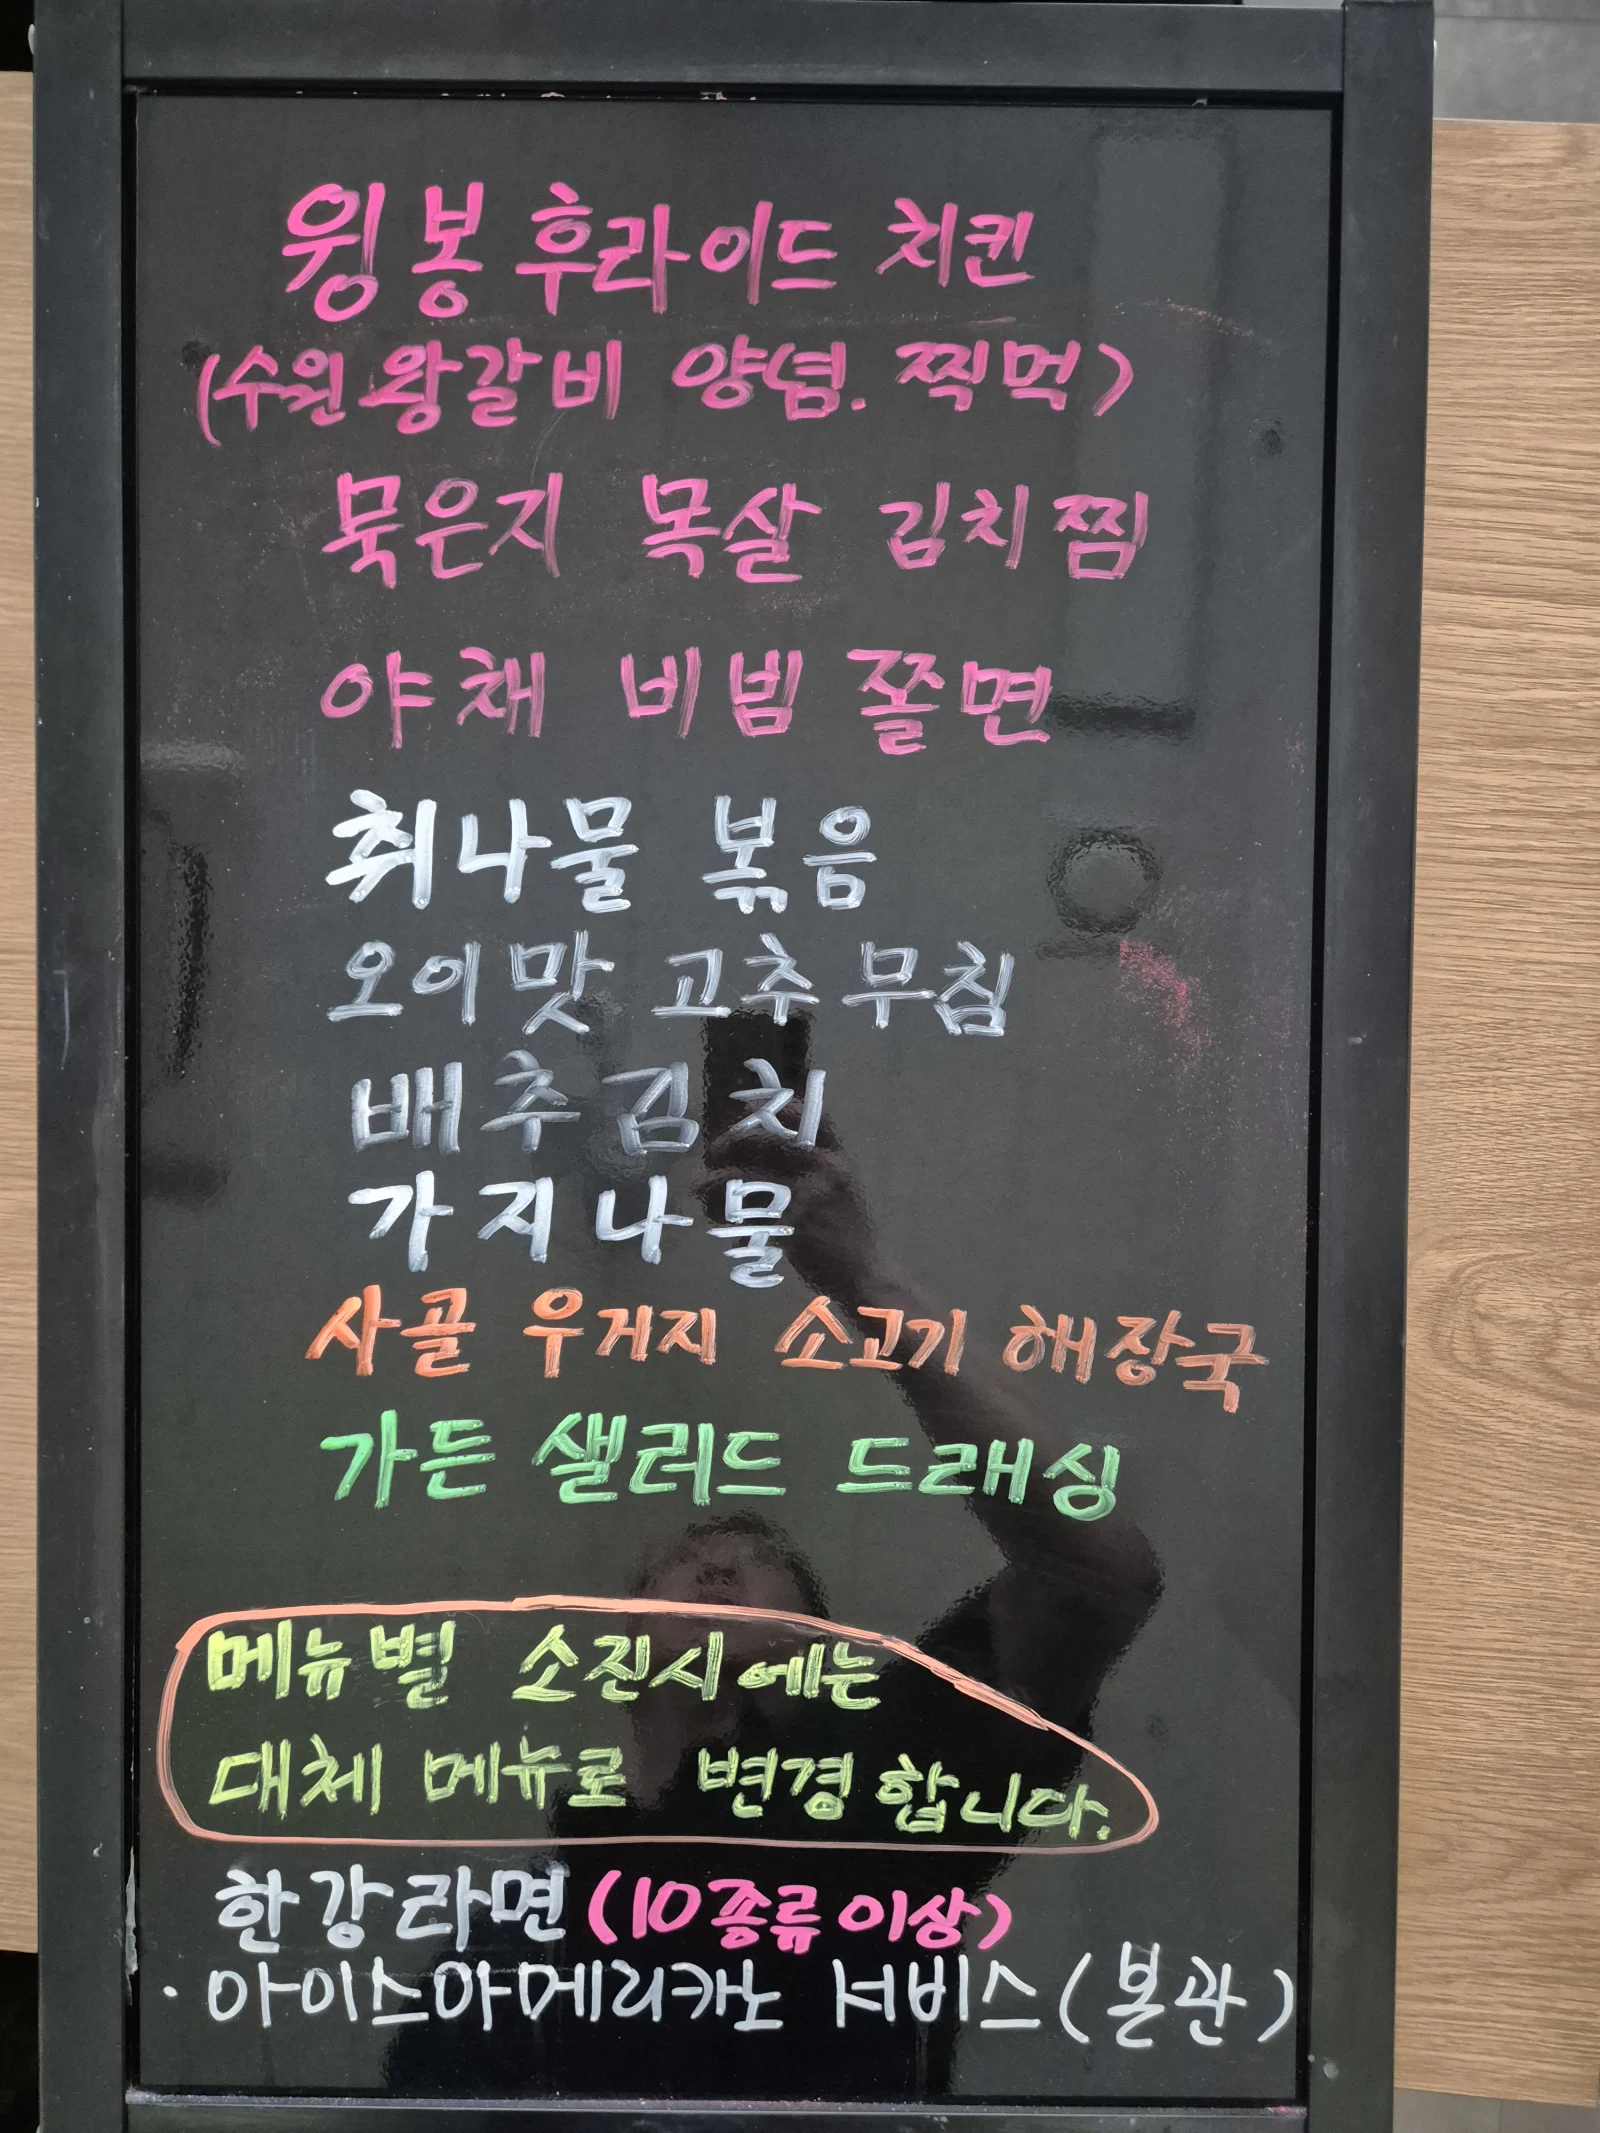 윙봉 후라이드 치킨
(수원 왕갈비 양념. 찍먹)
묵은지 목살 김치찜
야채 비빔 쫄면
취나물 볶음
오이맛 고추무침
배추김치
가지나물
사골 우거지 소고기 해장국
가든 샐러드 드래싱
메뉴별 소진시에는
대체 메뉴로 변경합니다.
한강라면 (10종류이상)
· 아이스아메리카노 서비스 (본관)